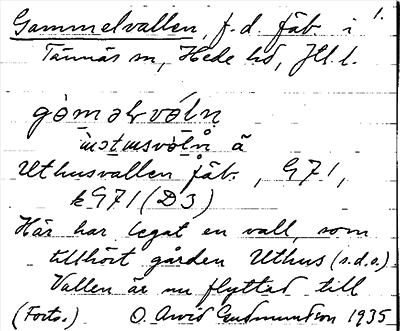 Gammelvallen, f.d. fäb. i 1.
Tännäs sn, Hede hd, Jtl. l.
Uthusvallen fäb., G 71,
k G 71 (D 3)
Här har legat en vall, som
tillhört gården Uthus (s.d.o.)
Vallen är nu flyttad till
(Forts.) O. Arvid Gudmundson 1935